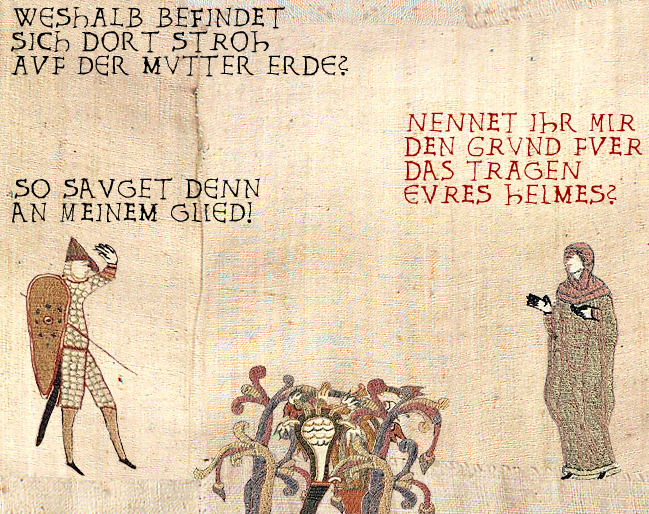 WESHALB BEFINDET
SICH DORT STROH
AVF DER MVTTER ERDE?
NENNET IHR MIR
DEN GRVND FVER
DAS TRAGEN
EVRES HELMES?
SO SAVGET DENN
AN MEINEM GLIED!